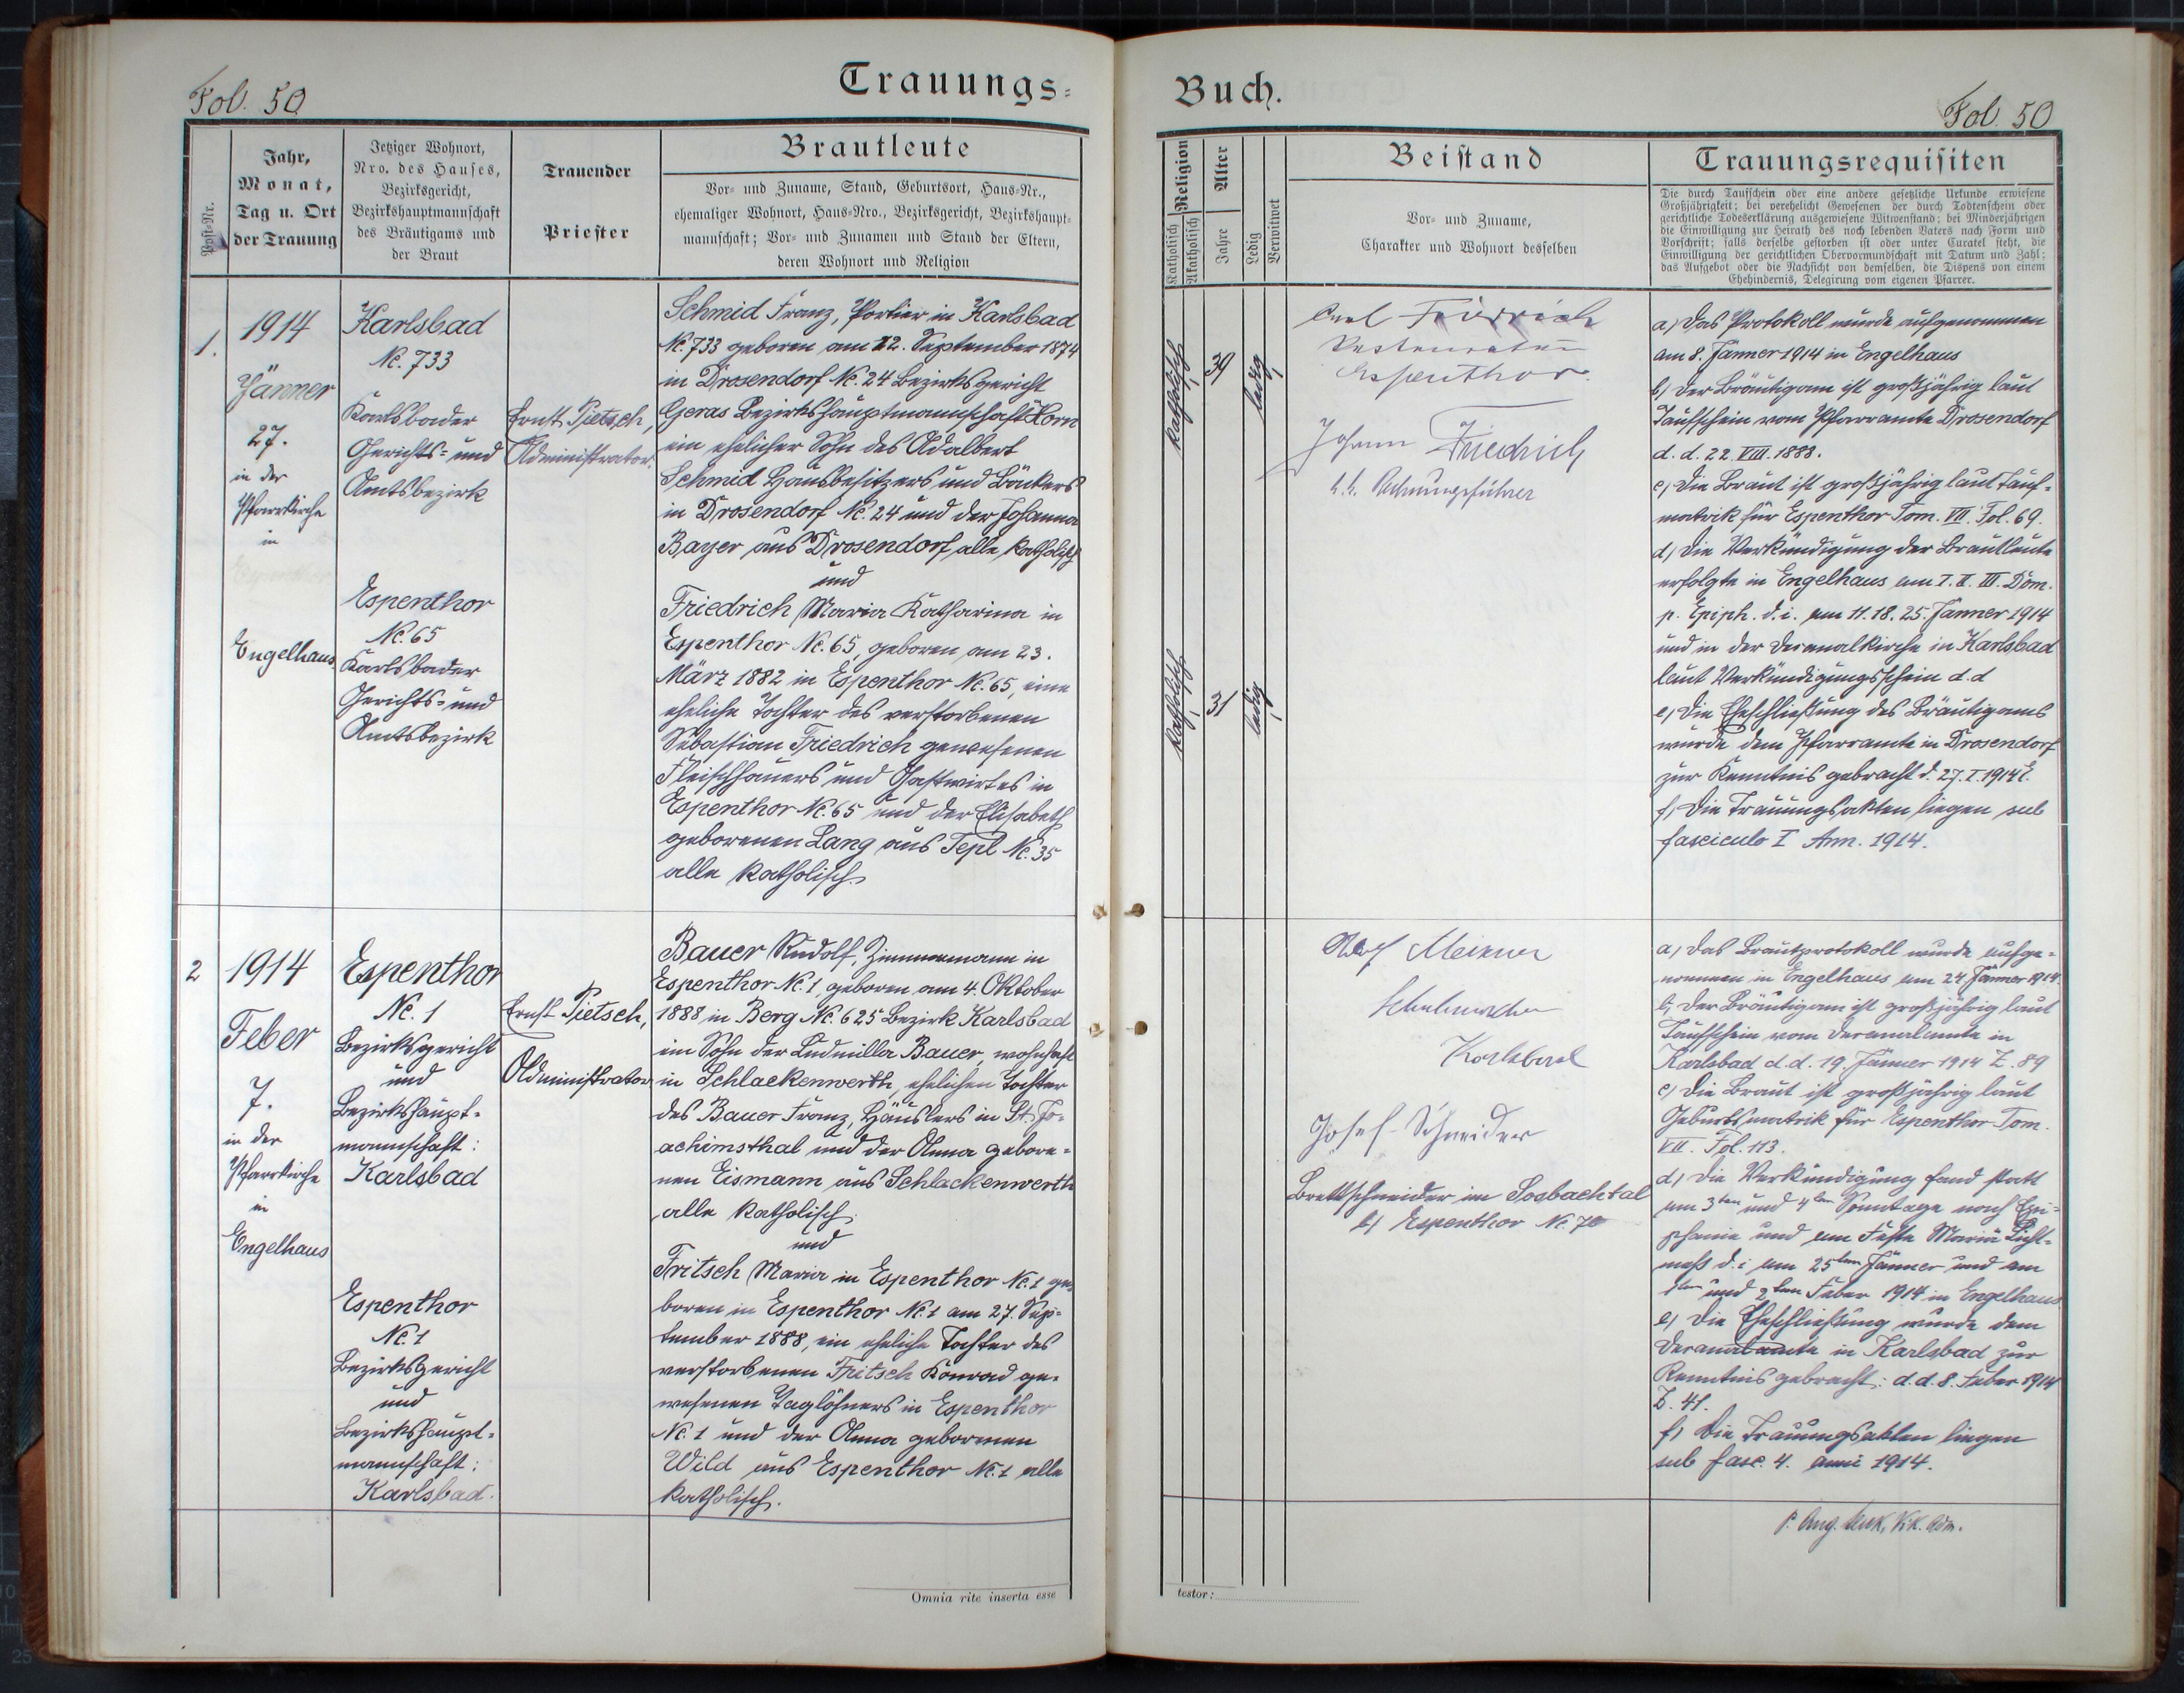 Fol. 50
Trauungs-
Post-Nr.
Jahr,
Monat,
Tag u. Ort
der Trauung
Jetziger Wohnort,
Nro. des Hauses,
Bezirksgericht,
Bezirkshauptmannschaft
des Bräutigams und
der Braut
Trauender
Priester
Brautleute
Vor- und Zuname, Stand, Geburtsort, Haus-Nr.,
ehemaliger Wohnort, Haus-Nro., Bezirksgericht, Bezirkshaupt-
mannschaft; Vor- und Zunamen und Stand der Eltern,
deren Wohnort und Religion
1.
1914
Jänner
27.
in der
Pfarrkirche
in
Engelhaus
Karlsbad
Nr. 733
Karlsbader
Gerichts- und
Amtsbezirk
Espenthor
Nr. 65
Karlsbader
Gerichts- und
Amtsbezirk
Ernst Pietsch,
Administrator.
Schmid Franz, Portier in Karlsbad
Nr. 733 geboren am 22. September 1874
in Drosendorf Nr. 24 Bezirksgericht
Geras Bezirkshauptmannschaft Horn
ein ehelicher Sohn des Adalbert
Schmid Hausbesitzers und Bäckers
in Drosendorf Nr. 24 und der Johanna
Bayer aus Drosendorf alle katholisch
und
Friedrich Maria Katharina in
Espenthor Nr. 65, geboren am 23.
März 1882 in Espenthor Nr. 65, eine
eheliche Tochter des verstorbenen
Sebastian Friedrich gewesenen
Fleischhauers und Gastwirtes in
Espenthor Nr. 65 und der Elisabeth
geborenen Lang aus Tepl Nr. 35
alle katholisch.
2
1914
Feber
7.
in der
Pfarrkirche
in
Engelhaus
Espenthor
Nr. 1
Bezirksgericht
und
Bezirkshaupt-
mannschaft:
Karlsbad
Espenthor
Nr. 1
Bezirksgericht
und
Bezirkshaupt-
mannschaft:
Karlsbad.
Ernst Pietsch,
Administrator
Bauer Rudolf, Zimmermann in
Espenthor Nr. 1 geboren am 4. Oktober
1888 in Berg Nr. 625 Bezirk Karlsbad
ein Sohn der Ludmilla Bauer, wohnhaft
in Schlackenwerth, ehelichen Tochter
des Bauer Franz, Häuslers in St. Jo-
achimsthal und der Anna gebore-
nen Eismann aus Schlackenwerth
alle katholisch.
und
Fritsch Maria in Espenthor Nr. 1 ge-
boren in Espenthor Nr. 1 am 27. Sep-
tember 1888, ein eheliche Tochter des
verstorbenen Fritsch Konrad ge-
wesenen Taglöhners in Espenthor
Nr. 1 und der Anna geborenen
Wild aus Espenthor Nr. 1 alle
katholisch.
Omnia rite inserta esse
Buch.
Fol. 50
Religion
Katholisch
Akatholisch
Alter
Jahre
Ledig
Verwitwet
Beistand
Vor- und Zuname,
Charakter und Wohnort desselben
Trauungsrequisiten
Die durch Taufschein oder eine andere gesetzliche Urkunde erwiesene
Großjährigkeit; bei verehelicht Gewesenen der durch Todtenschein oder
gerichtliche Todeserklärung ausgewiesene Witwenstand; bei Minderjährigen
die Einwilligung zur Heirath des noch lebenden Vaters nach Form und
Vorschrift; falls derselbe gestorben ist oder unter Curatel steht, die
Einwilligung der gerichtlichen Obervormundschaft mit Datum und Zahl;
das Aufgebot oder die Nachsicht von demselben, die Dispens von einem
Ehehindernis, Delegirung vom eigenen Pfarrer.
katholisch
39
ledig
katholisch
31
ledig
Espenthor.
Johann Friedrich
k.k. Rechnungsführer
a) Das Protokoll wurde aufgenommen
am 8. Jänner 1914 in Engelhaus
b) Der Bräutigam ist großjährig laut
Taufschein vom Pfarramte Drosendorf
d. d. 22. VIII. 1888.
c) Die Braut ist großjährig laut Tauf-
matrik für Espenthor Tom. VII. Fol. 69.
d) Die Verkündigung der Brautleute
erfolgte in Engelhaus am I. II. III. Dom.
p. Epiph. d. i. am 11. 18. 25. Jänner 1914
und in der Decanalkirche in Karlsbad
laut Verkündigungsschein d. d
e) Die Eheschließung des Bräutigams
wurde dem Pfarramte in Drosendorf
zur Kenntnis gebracht d. 27. I. 1914
f) Die Trauungsakten liegen sub
fasciculo I Ann. 1914.
Meixner
Schuhmacher
Karlsbad
Josef Schneider
Brettschneider im Sosbachtal
b/ Espenthor Nr. 70
a) Das Brautprotokoll wurde aufge-
nommen in Engelhaus am 24 Jänner 1914.
b) Der Bräutigam ist großjährig laut
Taufschein vom Decanalamte in
Karlsbad d. d. 19. Jänner 1914 Z. 89
c) Die Braut ist großjährig laut
Geburtsmatrik für Espenthor Tom.
VII. Fol. 113.
d) Die Verkündigung fand statt
am 3ten und 4ten Sonntage nach Epi-
phanie und am Feste Mariä Licht-
meß d. i am 25ten Jänner und am
1ten und 2ten Feber 1914 in Engelhaus
e) Die Eheschließung wurde dem
Decanalamte in Karlsbad zur
Kenntnis gebracht: d. d. 8. Feber 1914
Z. 41.
f) Die Trauungsakten liegen
sub fasc. 4. anni 1914.
testor: